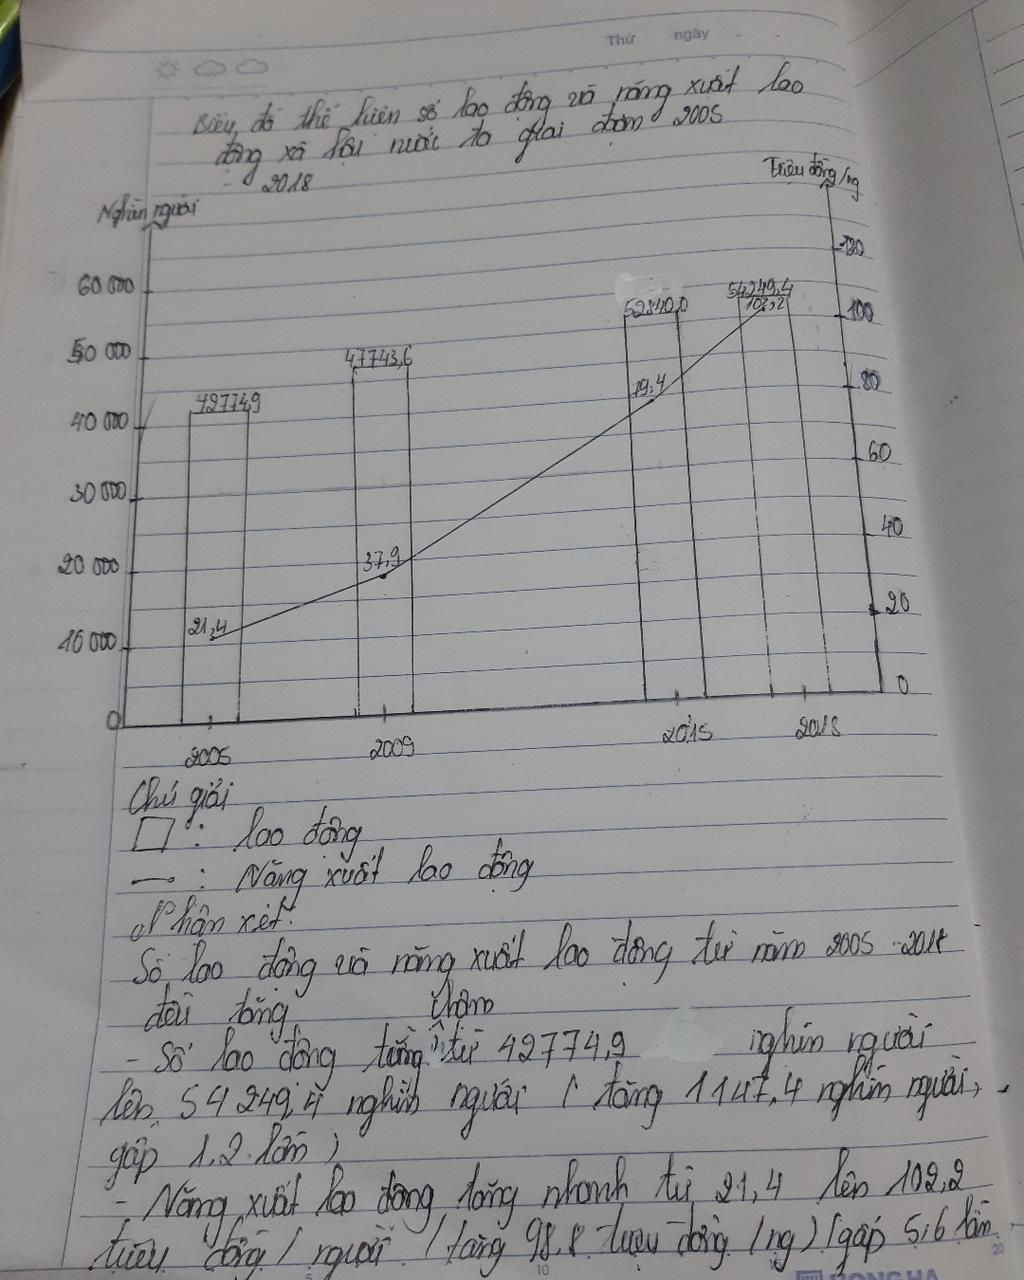 Thứ ngày
Biểu đồ thể hiện số lao động và năng xuất lao
động xã hội nước ta giai đoạn 2005
- 2018
Nghìn người
Triệu đồng/ng
60 000
50 000
40 000
30 000
20 000
10 000
0
120
100
80
60
40
20
0
42774,9
47743,6
52840,0
54249,4
21,4
37,9
79,4
102,2
2005
2009
2015
2018
Chú giải
: lao động
: Năng xuất lao động
Nhận xét:
Số lao động và năng xuất lao động từ năm 2005 - 2018
đều tăng
chậm
- Số lao động tăng từ 42774,9 nghìn người
lên 54 249,4 nghìn người ( tăng 1147,4 nghìn người,
gấp 1,2 lần )
- Năng xuất lao động tăng nhanh từ 21,4 lên 102,2
triệu đồng / người ( tăng 98,8 triệu đồng /ng) (gấp 5,6 lần
5 10 20
HONG HA